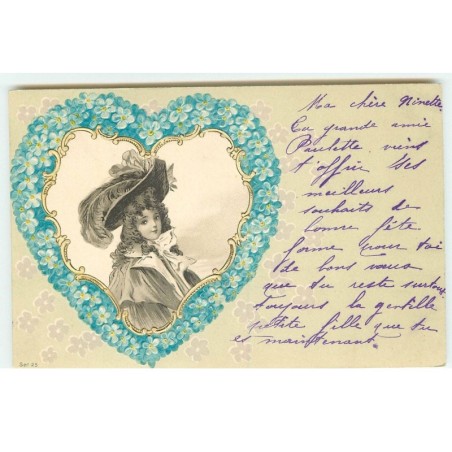 Ma chère Ninette,
Ta grande amie
Paulette viens
t'offrir ses
meilleurs
souhaits de
bonne fête
forme pour toi
de bons vœux
que tu reste surtout
toujours la gentille
petite fille que tu
es maintenant.
Ser 23